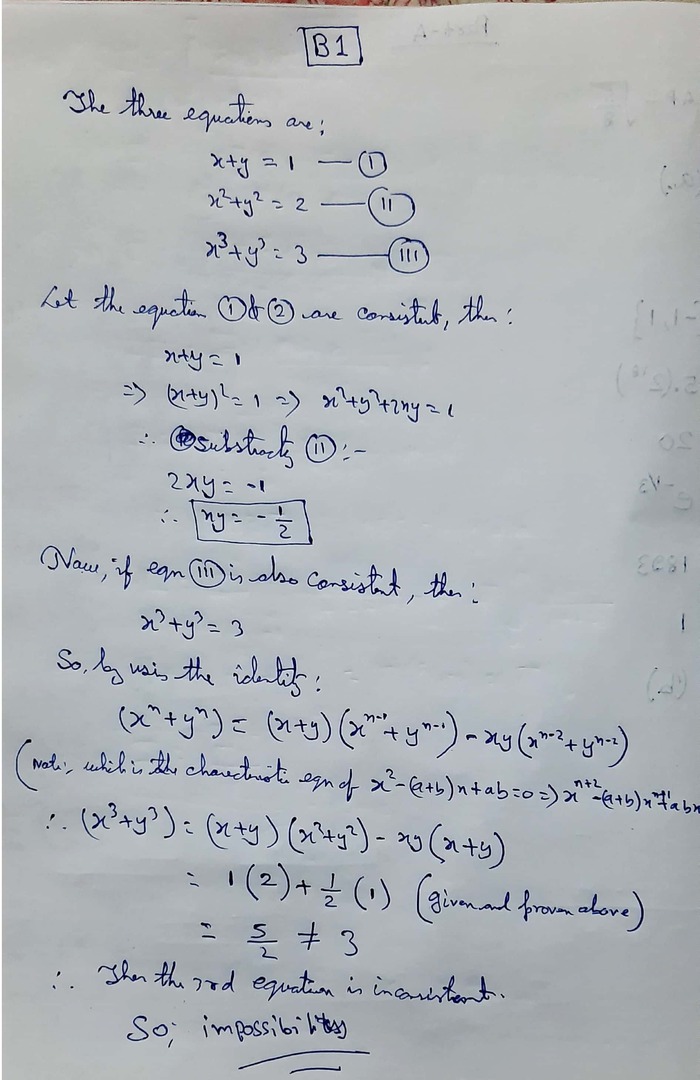 B1
The three equations are;
x+y = 1 — (I)
x²+y² = 2 — (II)
x³+y³ = 3 — (III)
Let the equation (1) & (2) are consistent, then:
x+y = 1
=> (x+y)² = 1 => x²+y²+2xy = 1
∴ substractg (II) :-
2xy = -1
∴ xy = - 1/2
Now, if eqn (III) is also consistent, then:
x³+y³ = 3
So, by using the identity:
(xⁿ+yⁿ) = (x+y)(xⁿ⁻¹+yⁿ⁻¹) - xy(xⁿ⁻²+yⁿ⁻²)
(Note:- which is the characteristic eqn of x²-(a+b)x+ab=0 => xⁿ⁺²-(a+b)xⁿ⁺¹+abx
∴ (x³+y³) = (x+y)(x²+y²) - xy(x+y)
= 1(2) + 1/2 (1) (given and proven above)
= 5/2 ≠ 3
∴ Then the 3rd equation is inconsistent.
So; impossibility